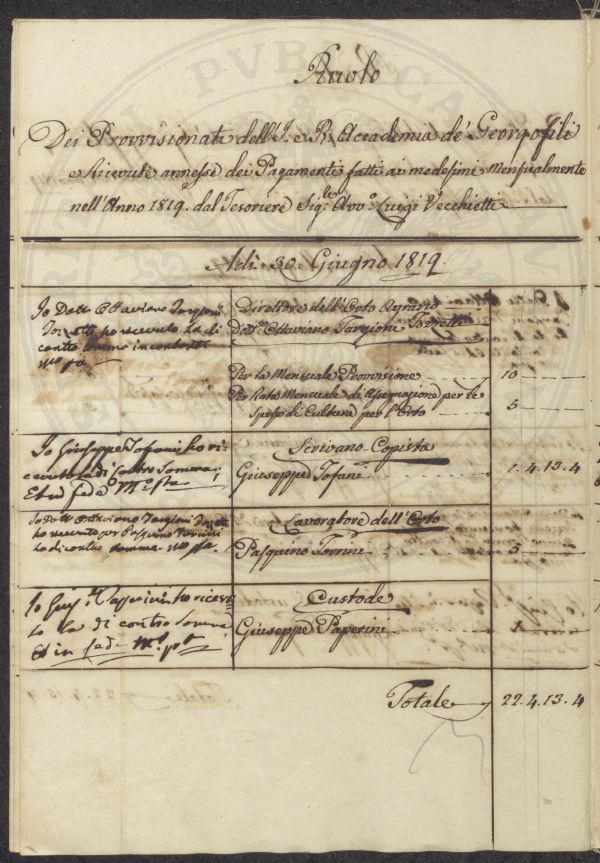 Ruolo
Dei Provvisionati dell'I. e R. Accademia de' Georgofili
e Ricevute annesse dei Pagamenti fatti ai medesimi Mensualmente
nell'Anno 1819. dal Tesoriere Sig.re Avv.o Luigi Vecchietti
Adì 30. Giugno 1819
Io Dott. Ottaviano Targioni
Tozzetti ho ricevuto la di
contro somma in contanti
Mo. pa.
Direttore dell'Orto Agrario
Dott. Ottaviano Targioni Tozzetti
Per la Mensuale Provvisione 10
Per Rata Mensuale di Assegnazione per le
Spese di Cultura per l'Orto 5
Io Giuseppe Tofani ho ri-
cevuto la di Contro Somma
Et in fede Mo. pa.
Scrivano Copista
Giuseppe Tofani 1. 4. 13. 4
Io Dott. Ottaviano Targioni Tozzetti
ho ricevuto per Pasquino Torrini
la di contro somma Mo. pa.
Lavoratore dell'Orto
Pasquino Torrini 5
Io Gius.e Paperini ho ricevu
to la di contro somma
Et in fede Mo. pa.
Custode
Giuseppe Paperini 1
Totale 22. 4. 13. 4